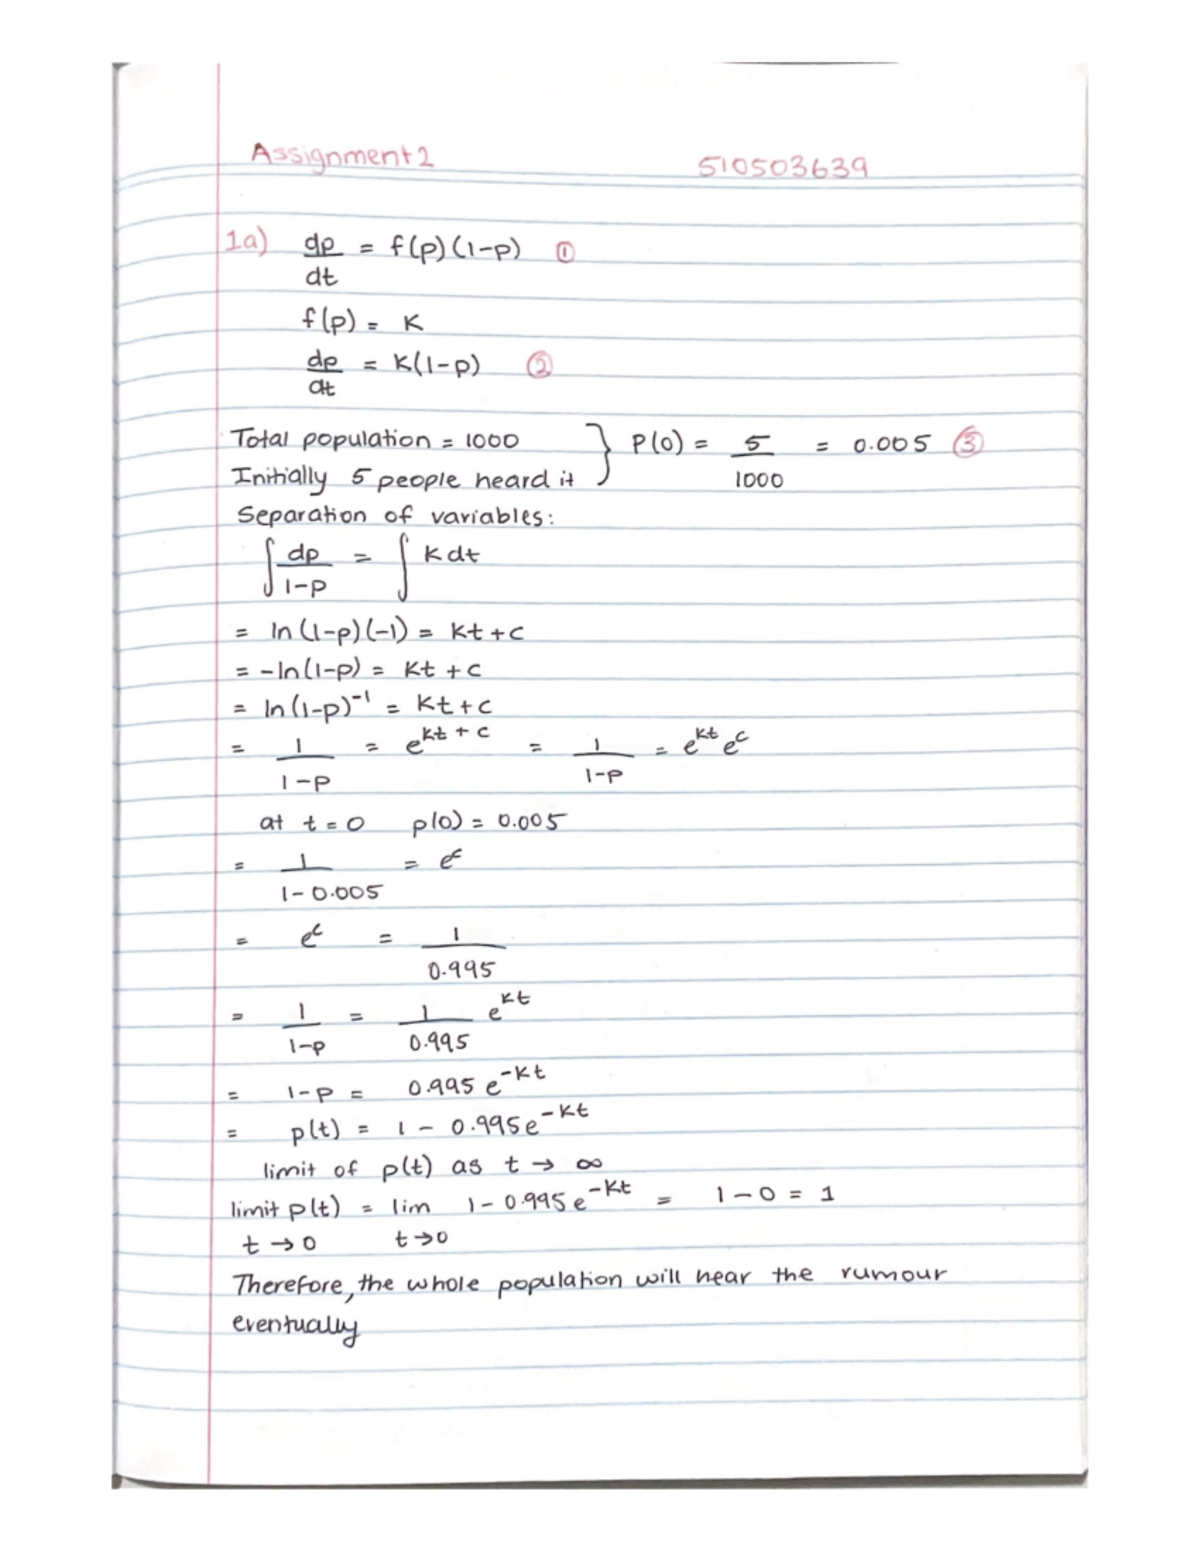 Assignment 2 510503639
1a) dp/dt = f(p)(1-p) ①
f(p) = K
dp/dt = K(1-p) ②
Total population = 1000 } P(0) = 5/1000 = 0.005 ③
Initially 5 people heard it
Separation of variables:
∫ dp/1-p = ∫ K dt
= ln(1-p)(-1) = Kt + c
= -ln(1-p) = Kt + c
= ln(1-p)⁻¹ = Kt + c
= 1/1-p = e^(Kt + c) = 1/1-p = e^(Kt) e^c
at t = 0 p(0) = 0.005
= 1/1-0.005 = e^c
= e^c = 1/0.995
= 1/1-p = 1/0.995 e^(Kt)
= 1-p = 0.995 e^(-Kt)
= p(t) = 1 - 0.995e^(-Kt)
limit of p(t) as t → ∞
limit p(t) = lim 1 - 0.995 e^(-Kt) = 1 - 0 = 1
t → 0 t → 0
Therefore, the whole population will hear the rumour
eventually